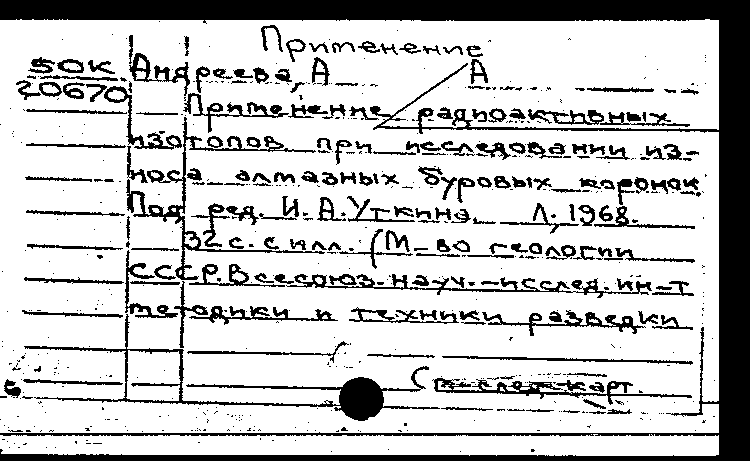 Применение
50К Андреева, А А
20670 Применение радиоактивных
изотопов при исследовании из-
носа алмазных буровых коронок.
Под ред. И. А. Уткина. Л., 1968.
32 с. с илл. (М-во геологии
СССР. Всесоюз. науч.-исслед. ин-т
методики и техники разведки
(см. след. карт.